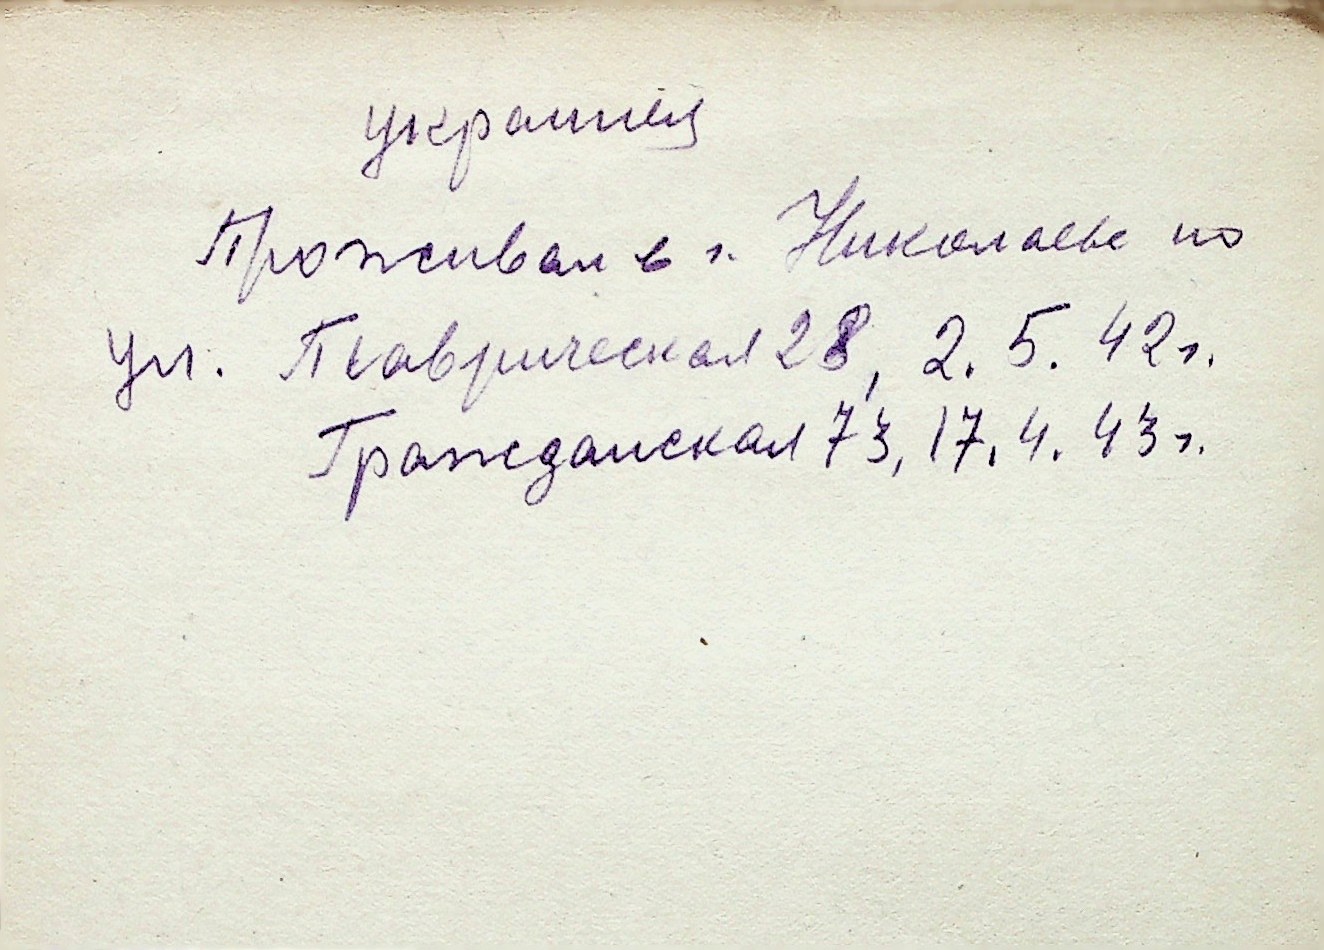 украинец
Проживал в г. Николаеве по
ул. Таврическая 28, 2. 5. 42 г.
Гражданская 73, 17. 4. 43 г.